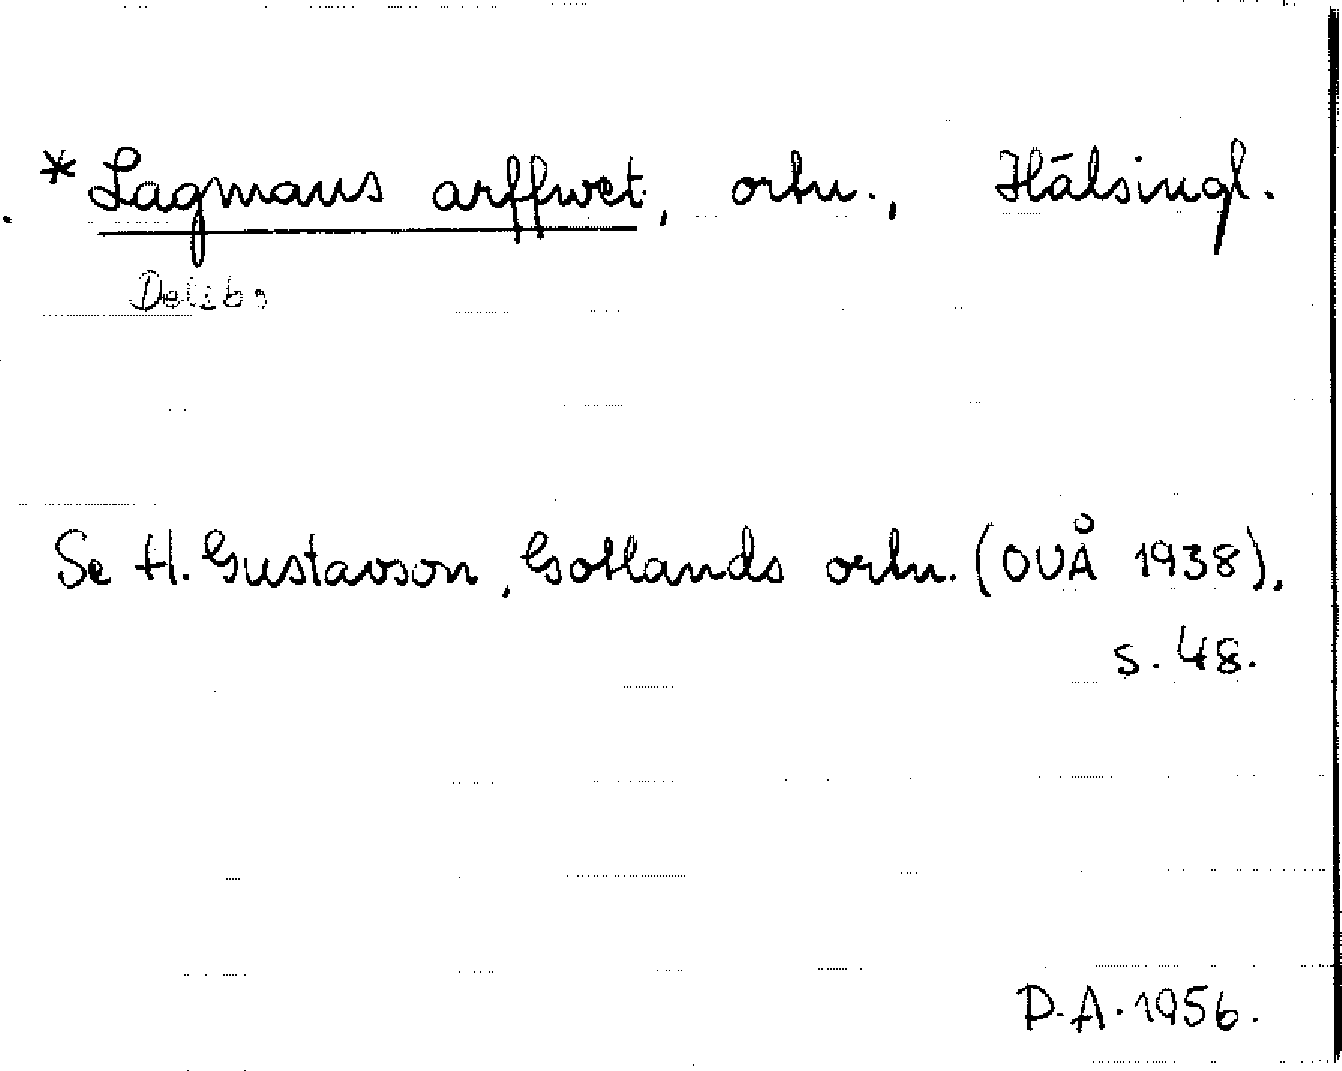 *Lagmans arffwet, ortn., Hälsingl.
Delsbo
Se H. Gustavson, Gotlands ortn. (OUÅ 1938),
s. 48.
D.A. 1956.